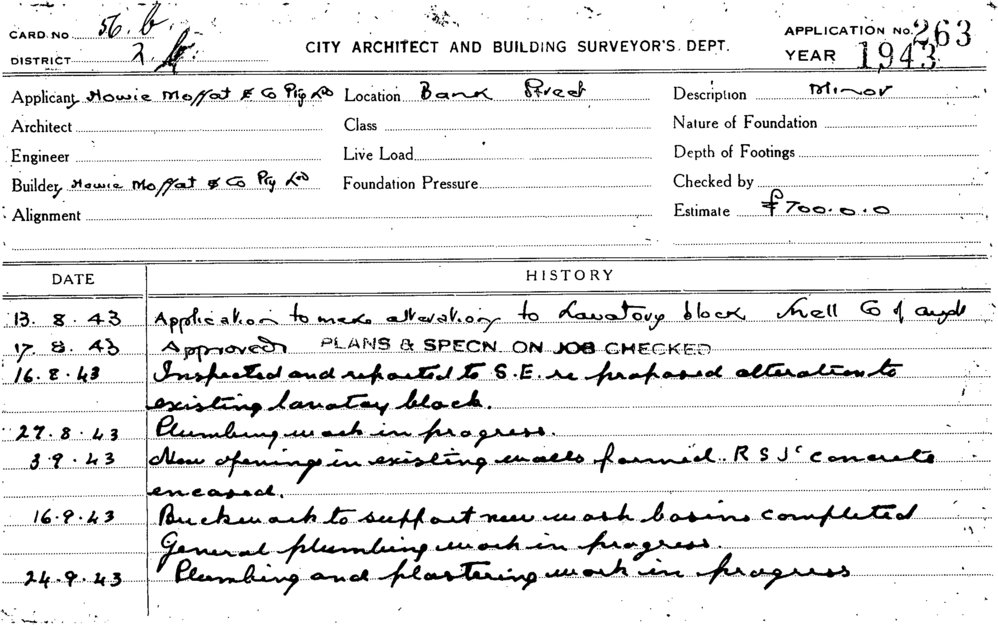 CARD NO 56. b
DISTRICT 2.
CITY ARCHITECT AND BUILDING SURVEYOR'S. DEPT.
APPLICATION No. 263
YEAR 1943
Applicant Howie Moffat & Co Pty Ltd
Location Bank Street
Description Minor
Architect
Class
Nature of Foundation
Engineer
Live Load
Depth of Footings
Builder Howie Moffat & Co Pty Ltd
Foundation Pressure
Checked by
Alignment
Estimate £700.0.0
DATE
HISTORY
13. 8. 43 Application to make alterations to Lavatory block Shell Co of
17. 8. 43 Approved PLANS & SPECN. ON JOB CHECKED
16. 8. 43 Inspected and reported to S.E. re proposed alteration to
existing lavatory block.
27. 8. 43 Plumbing work in progress.
3 9. 43 New openings in existing walls formed. R S Js concrete
encased.
16. 9. 43 Brickwork to support new wash basins completed
General plumbing work in progress.
24. 9. 43 Plumbing and plastering work in progress